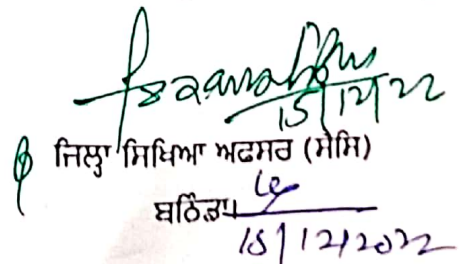 15/12/22
ਜਿਲ੍ਹਾ ਸਿਖਿਆ ਅਫਸਰ (ਸੈਸਿ)
ਬਠਿੰਡਾ।
15/12/2022